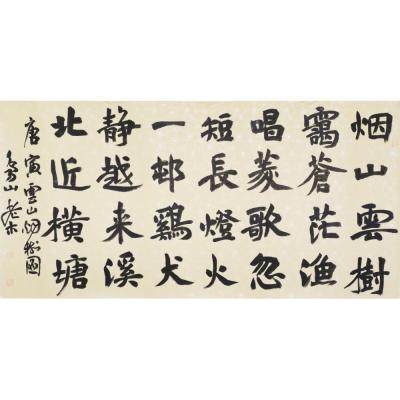 烟山雲樹
靄蒼茫漁
唱菱歌忽
短長燈火
一邨鷄犬
静越来溪
北近横塘
唐寅雲山烟樹圖
山老